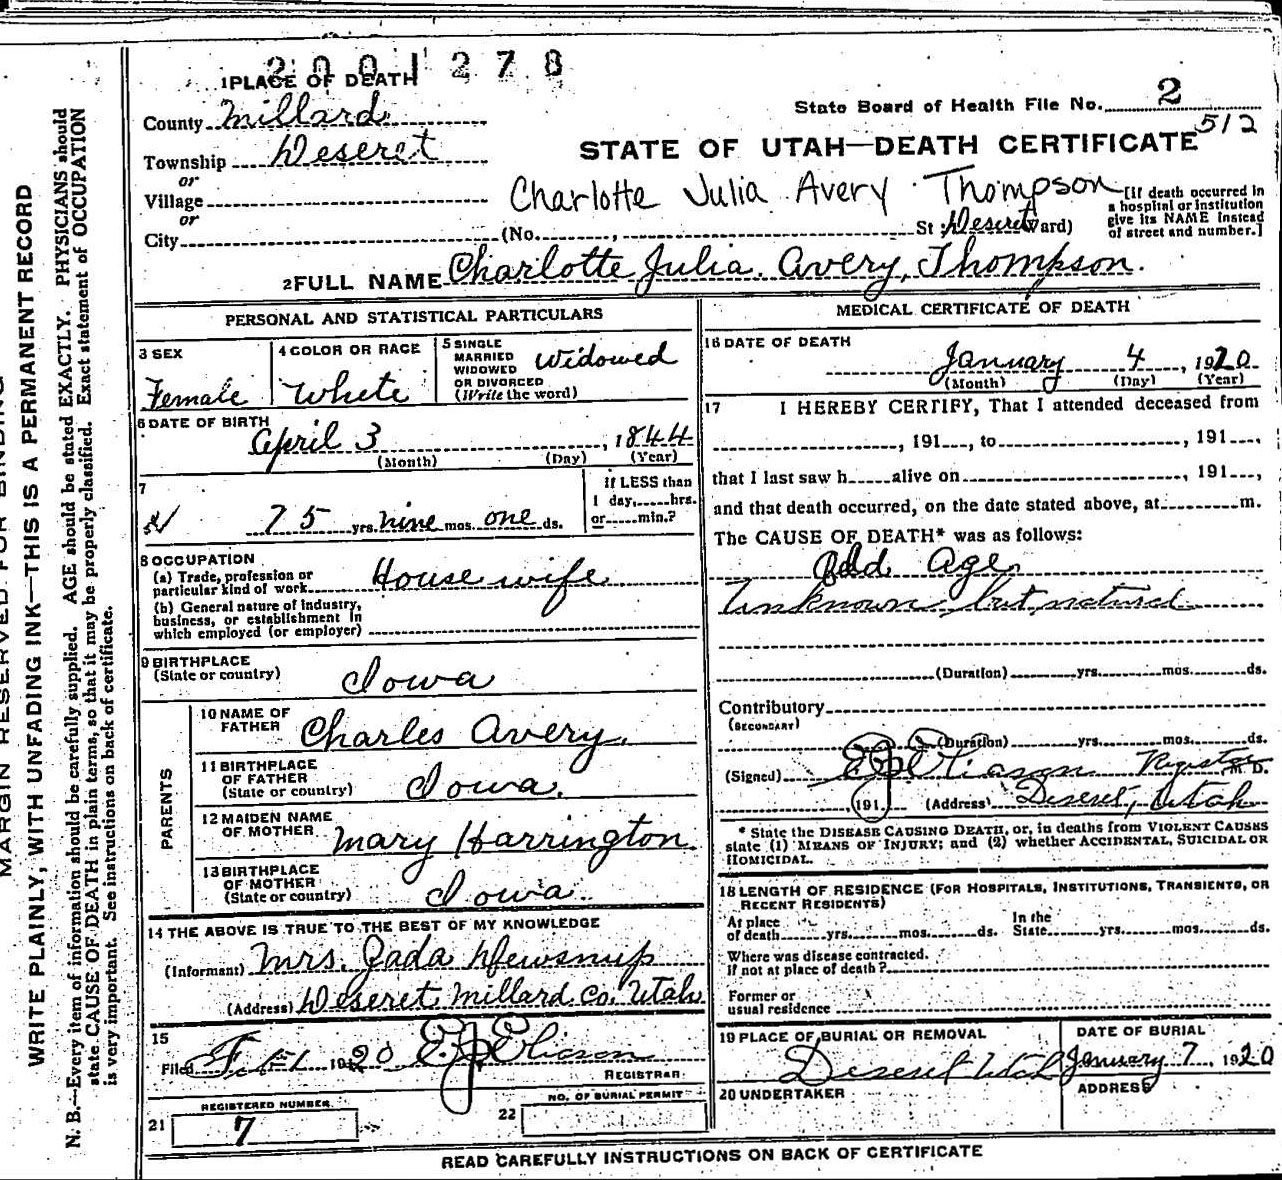 2001278
1 PLACE OF DEATH
State Board of Health File No. 2
512
County Millard
Township Deseret
or
Village
or
City
STATE OF UTAH—DEATH CERTIFICATE
Charlotte Julia Avery Thompson
[If death occurred in a hospital or institution give its NAME instead of street and number.]
(No. , St ; Deseret Ward)
2 FULL NAME Charlotte Julia Avery Thompson.
PERSONAL AND STATISTICAL PARTICULARS
3 SEX
Female
4 COLOR OR RACE
White
5 SINGLE
MARRIED
WIDOWED
OR DIVORCED
(Write the word)
Widowed
6 DATE OF BIRTH
April 3 , 1844
(Month) (Day) (Year)
7
75 yrs. nine mos. one ds.
If LESS than
1 day, hrs.
or min.?
8 OCCUPATION
(a) Trade, profession or
particular kind of work House wife
(b) General nature of industry,
business, or establishment in
which employed (or employer)
9 BIRTHPLACE
(State or country) Iowa
PARENTS
10 NAME OF
FATHER Charles Avery.
11 BIRTHPLACE
OF FATHER
(State or country) Iowa.
12 MAIDEN NAME
OF MOTHER Mary Harrington
13 BIRTHPLACE
OF MOTHER
(State or country) Iowa.
14 THE ABOVE IS TRUE TO THE BEST OF MY KNOWLEDGE
(Informant) Mrs. Jada Dewsnup
(Address) Deseret. Millard. Co. Utah
15
Filed Feb 1 1920
REGISTRAR.
REGISTERED NUMBER
21 7
NO. OF BURIAL PERMIT
22
MEDICAL CERTIFICATE OF DEATH
16 DATE OF DEATH
January 4 , 1920
(Month) (Day) (Year)
17 I HEREBY CERTIFY, That I attended deceased from
, 191 , to , 191 ,
that I last saw h alive on , 191 ,
and that death occurred, on the date stated above, at m.
The CAUSE OF DEATH* was as follows:
Old Age
Unknown but natural
(Duration) yrs. mos. ds.
Contributory
(SECONDARY)
(Duration) yrs. mos. ds.
(Signed) Register M. D.
191 (Address) Deseret, Utah
* State the DISEASE CAUSING DEATH, or, in deaths from VIOLENT CAUSES
state (1) MEANS OF INJURY; and (2) whether ACCIDENTAL, SUICIDAL OR
HOMICIDAL.
18 LENGTH OF RESIDENCE (FOR HOSPITALS, INSTITUTIONS, TRANSIENTS, OR
RECENT RESIDENTS)
At place
of death yrs. mos. ds.
In the
State yrs. mos. ds.
Where was disease contracted.
If not at place of death?
Former or
usual residence
19 PLACE OF BURIAL OR REMOVAL
Deseret Utah
DATE OF BURIAL
January 7, 1920
20 UNDERTAKER
ADDRESS
READ CAREFULLY INSTRUCTIONS ON BACK OF CERTIFICATE
MARGIN RESERVED FOR BINDING
WRITE PLAINLY, WITH UNFADING INK—THIS IS A PERMANENT RECORD
N. B.—Every item of information should be carefully supplied. AGE should be stated EXACTLY. PHYSICIANS should
state CAUSE OF DEATH in plain terms, so that it may be properly classified. Exact statement of OCCUPATION
is very important. See instructions on back of certificate.